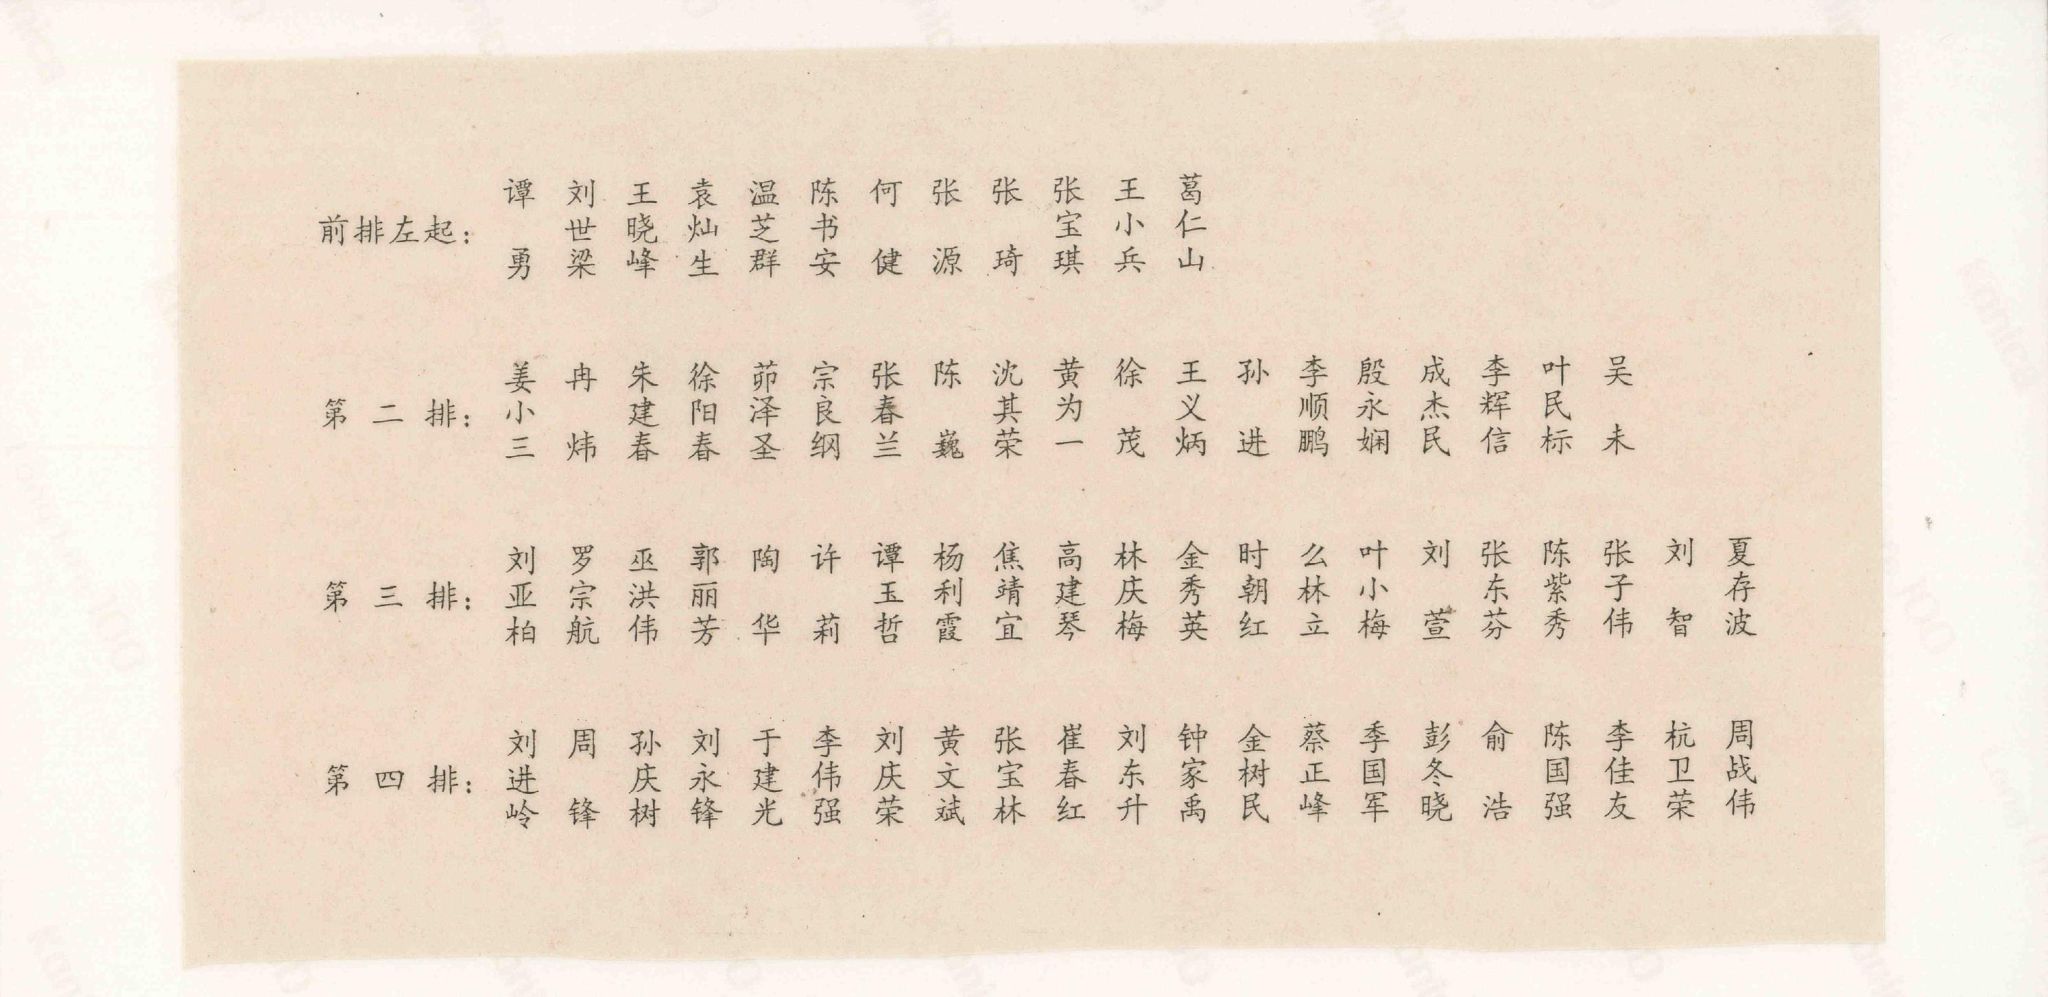 前排左起： 谭勇 刘世梁 王晓峰 袁灿生 温芝群 陈书安 何健 张源 张琦 张宝琪 王小兵 葛仁山
第二排： 姜小三 冉炜 朱建春 徐阳春 茆泽圣 宗良纲 张春兰 陈巍 沈其荣 黄为一 徐茂 王义炳 孙进 李顺鹏 殷永娴 成杰民 李辉信 叶民标 吴未
第三排： 刘亚柏 罗宗航 巫洪伟 郭丽芳 陶华 许莉 谭玉哲 杨利霞 焦靖宜 高建琴 林庆梅 金秀英 时朝红 么林立 叶小梅 刘萱 张东芬 陈紫秀 张子伟 刘智 夏存波
第四排： 刘进岭 周锋 孙庆树 刘永锋 于建光 李伟强 刘庆荣 黄文斌 张宝林 崔春红 刘东升 钟家禹 金树民 蔡正峰 季国军 彭冬晓 俞浩 陈国强 李佳友 杭卫荣 周战伟